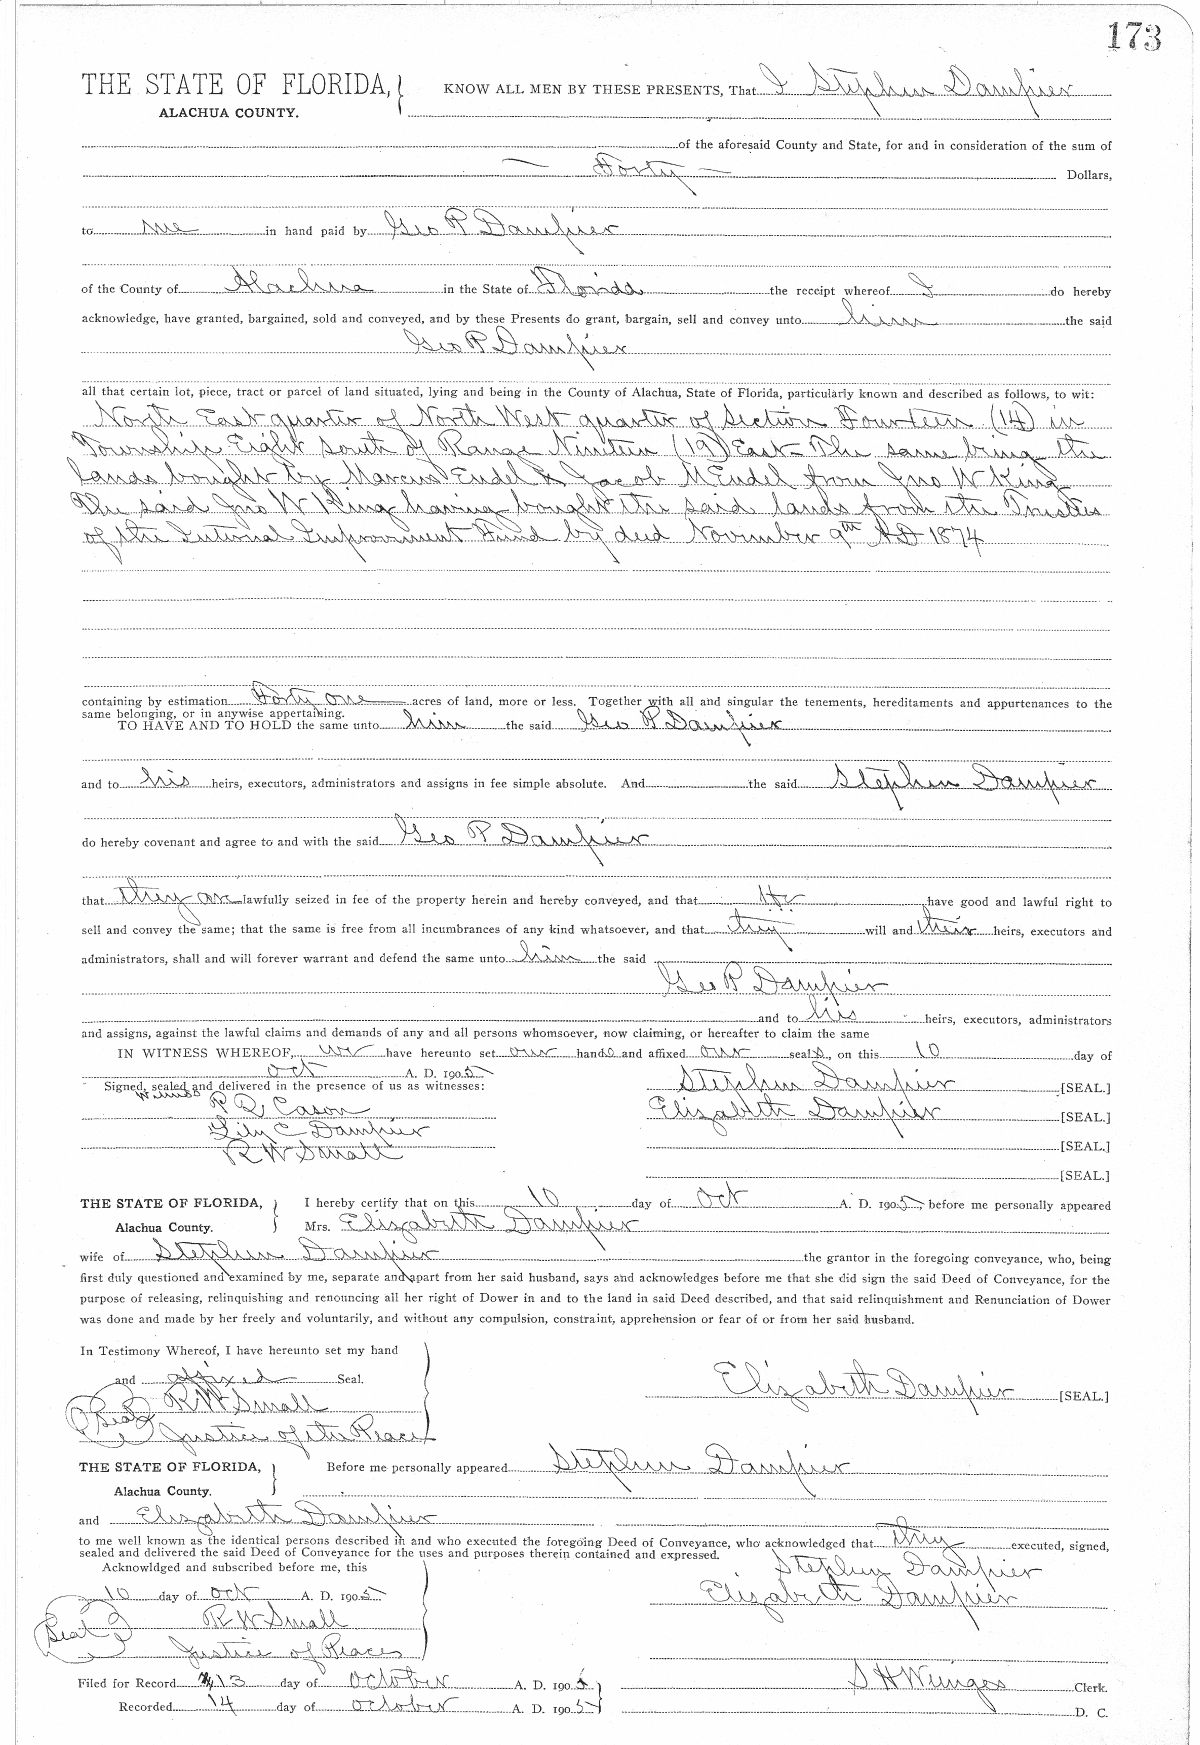 173
THE STATE OF FLORIDA, KNOW ALL MEN BY THESE PRESENTS, That I Stephen Dampier
ALACHUA COUNTY.
of the aforesaid County and State, for and in consideration of the sum of
Forty Dollars,
to me in hand paid by Geo P Dampier
of the County of Alachua in the State of Florida the receipt whereof I do hereby
acknowledge, have granted, bargained, sold and conveyed, and by these Presents do grant, bargain, sell and convey unto him the said
Geo P Dampier
all that certain lot, piece, tract or parcel of land situated, lying and being in the County of Alachua, State of Florida, particularly known and described as follows, to wit:
North East quarter of North West quarter of Section Fourteen (14) in
Township Eight South of Range Nineteen (19) East - The same being the
lands bought by Marcus Endel & Jacob M Endel from Jno W King
The said Jno W King having bought the said lands from the Trustees
of the Internal Improvment Fund by deed November 9th AD 1874
containing by estimation Forty one acres of land, more or less. Together with all and singular the tenements, hereditaments and appurtenances to the
same belonging, or in anywise appertaining.
TO HAVE AND TO HOLD the same unto him the said Geo P Dampier
and to his heirs, executors, administrators and assigns in fee simple absolute. And the said Stephen Dampier
do hereby covenant and agree to and with the said Geo P Dampier
that they are lawfully seized in fee of the property herein and hereby conveyed, and that have good and lawful right to
sell and convey the same; that the same is free from all incumbrances of any kind whatsoever, and that they will and their heirs, executors and
administrators, shall and will forever warrant and defend the same unto him the said
Geo P Dampier
and to his heirs, executors, administrators
and assigns, against the lawful claims and demands of any and all persons whomsoever, now claiming, or hereafter to claim the same
IN WITNESS WHEREOF, we have hereunto set our hands and affixed our seals, on this 10 day of
Oct A. D. 1905
Signed, sealed and delivered in the presence of us as witnesses: Stephen Dampier [SEAL.]
Witness R Q Cason Elizabeth Dampier [SEAL.]
Lily C Dampier [SEAL.]
R W Small [SEAL.]
THE STATE OF FLORIDA, I hereby certify that on this 10 day of Oct A. D. 1905, before me personally appeared
Alachua County. Mrs. Elizabeth Dampier
wife of Stephen Dampier the grantor in the foregoing conveyance, who, being
first duly questioned and examined by me, separate and apart from her said husband, says and acknowledges before me that she did sign the said Deed of Conveyance, for the
purpose of releasing, relinquishing and renouncing all her right of Dower in and to the land in said Deed described, and that said relinquishment and Renunciation of Dower
was done and made by her freely and voluntarily, and without any compulsion, constraint, apprehension or fear of or from her said husband.
In Testimony Whereof, I have hereunto set my hand
and affixed Seal. Elizabeth Dampier [SEAL.]
Seal R W Small
Justice of the Peace
THE STATE OF FLORIDA, Before me personally appeared Stephen Dampier
Alachua County.
and Elizabeth Dampier
to me well known as the identical persons described in and who executed the foregoing Deed of Conveyance, who acknowledged that they executed, signed,
sealed and delivered the said Deed of Conveyance for the uses and purposes therein contained and expressed.
Acknowldged and subscribed before me, this Stephen Dampier
10 day of Oct A. D. 1905 Elizabeth Dampier
Seal R W Small
Justice of Peace
Filed for Record 13 day of October A. D. 1905 S H Wienges Clerk.
Recorded 14 day of October A. D. 1905 D. C.